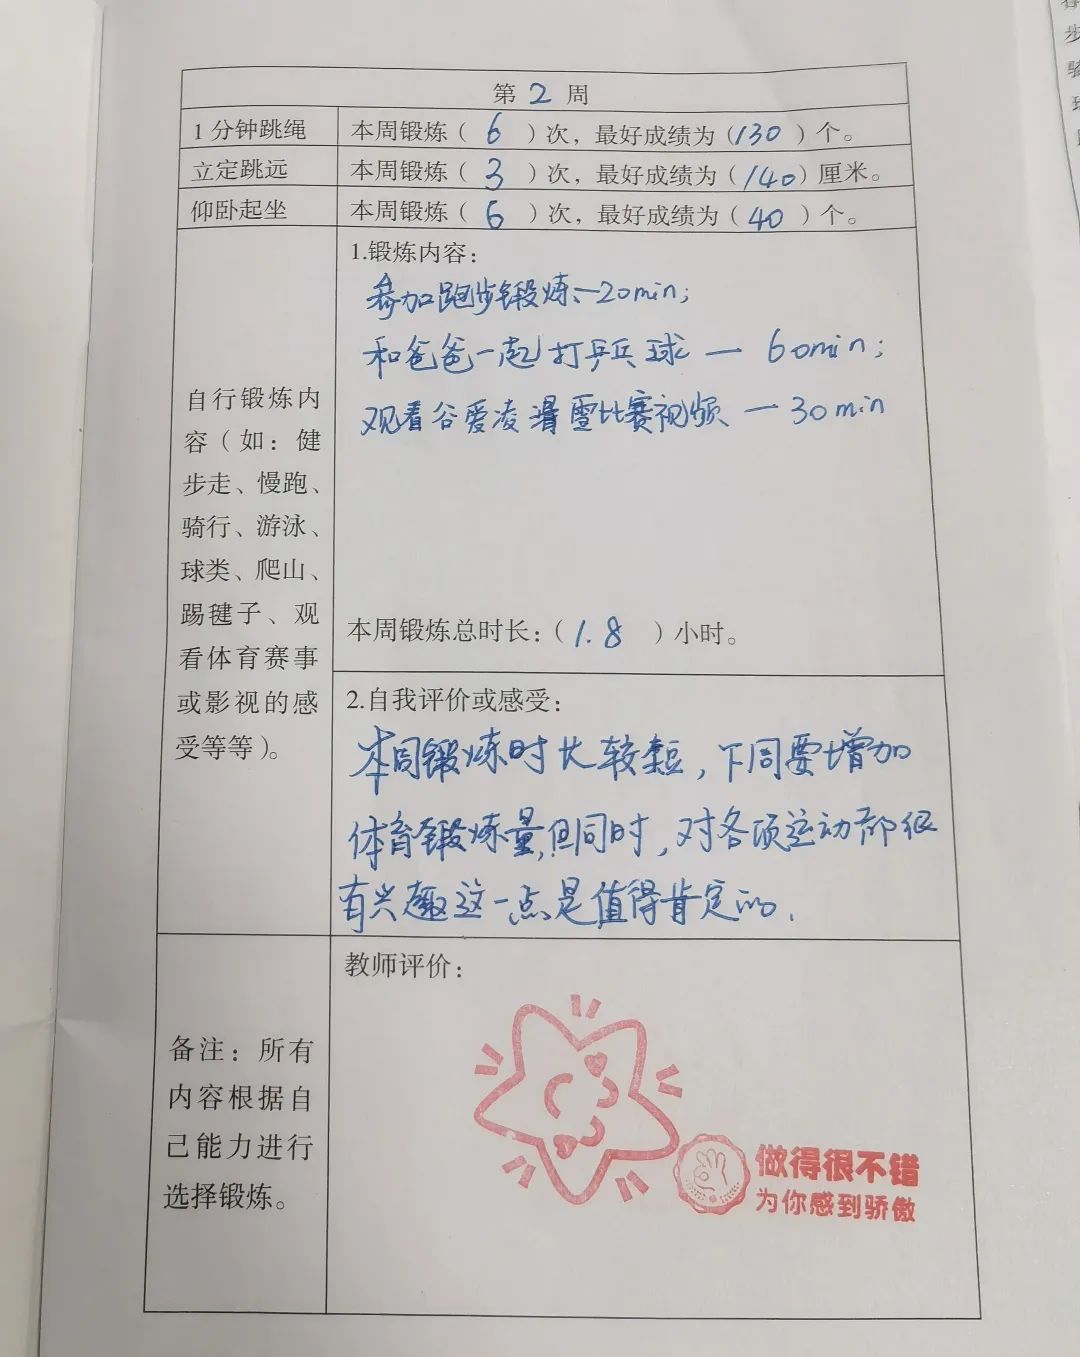 第 2 周
1分钟跳绳 本周锻炼（ 6 ）次，最好成绩为（130 ）个。
立定跳远 本周锻炼（ 3 ）次，最好成绩为（140）厘米。
仰卧起坐 本周锻炼（ 6 ）次，最好成绩为（ 40 ）个。
自行锻炼内
容（如：健
步走、慢跑、
骑行、游泳、
球类、爬山、
踢毽子、观
看体育赛事
或影视的感
受等等）。
1.锻炼内容：
参加跑步锻炼—20min；
和爸爸一起打乒乓球 — 60min；
观看谷爱凌滑雪比赛视频 — 30min
本周锻炼总时长：（1.8 ）小时。
2.自我评价或感受：
本周锻炼时长较短，下周要增加
体育锻炼量，但同时，对各项运动都很
有兴趣这一点是值得肯定的.
备注：所有
内容根据自
己能力进行
选择锻炼。
教师评价：
做得很不错
为你感到骄傲
步
骑